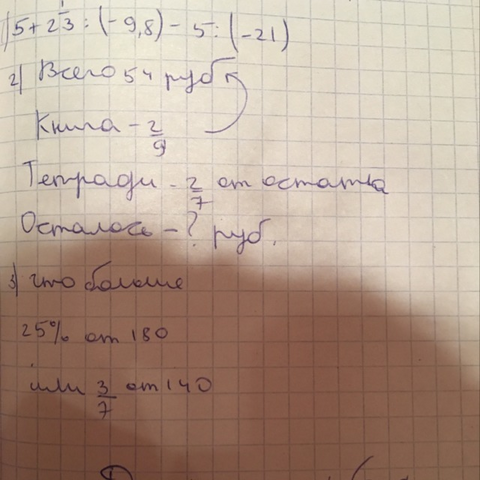 1) 5 + 2 1/3 : (-9,8) - 5 : (-21)
2) Всего 54 руб
Книга - 2/9
Тетради - 2/7 от остатка
Осталось - ? руб.
3) что больше
25% от 180
или 3/7 от 140